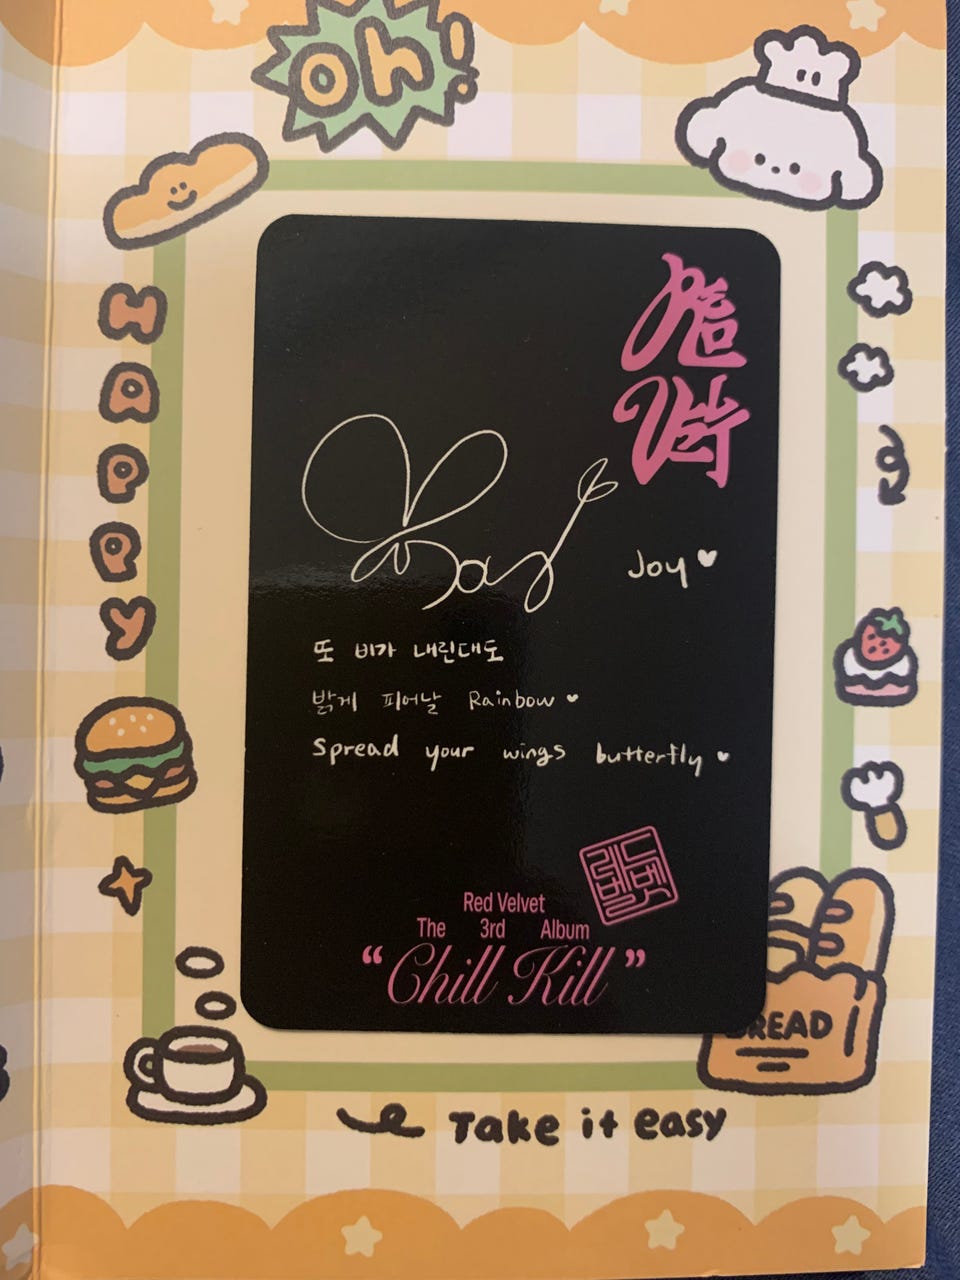 oh!
HAPPY
Joy♥
또 비가 내린대도
밝게 피어날 Rainbow ♥
Spread your wings butterfly ♥
레드
벨벳
Red Velvet
The 3rd Album
“Chill Kill”
BREAD
Take it easy